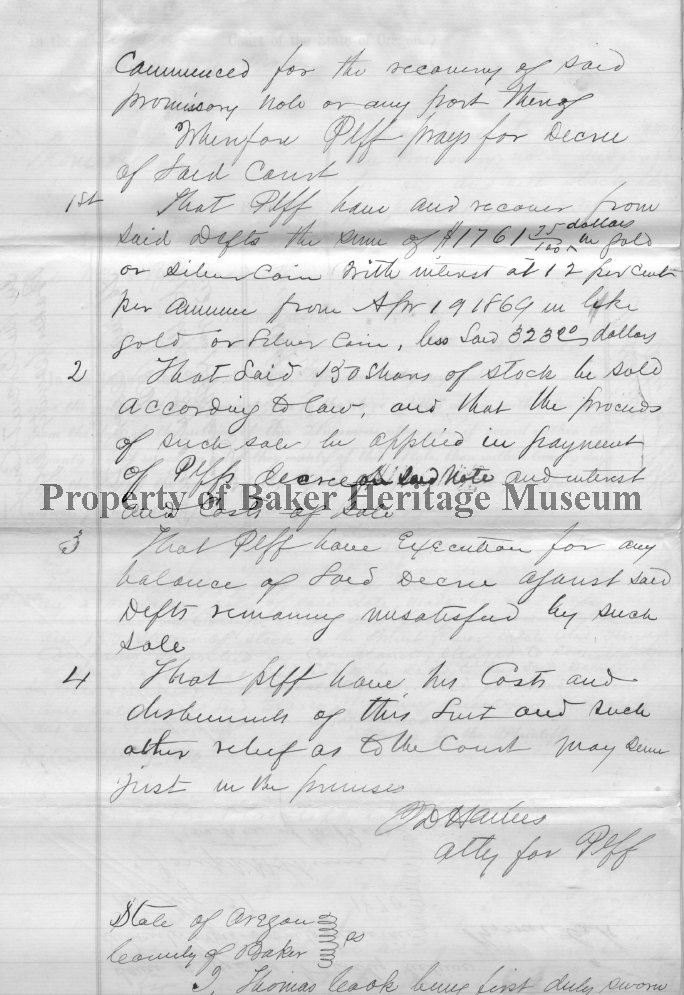 Commenced for the recovery of said
promissory note or any part thereof
Wherefore Plff prays for Decree
of Said Court
1st That Plff have and recover from
said Defts the sum of $1761 25/100 dollars in gold
or silver Coin with interest at 12 per cent
per annum from Apr 19 1869 in like
gold or Silver Coin, less Said 323 00 dollars
2 That Said 150 Shares of stock be sold
according to law, and that the proceeds
of such sale be applied in payment
of Plffs decree on said Note and interest
and Costs of Sale
Property of Baker Heritage Museum
3 That Plff have Execution for any
balance of Said Decree against said
Defts remaining unsatisfied by such
sale
4 That plff have his Costs and
disbursements of this Suit and such
other relief as to the Court may seem
just in the premises
I D Haines
atty for Plff
State of Oregon
County of Baker ss
I, Thomas Cook being first duly sworn